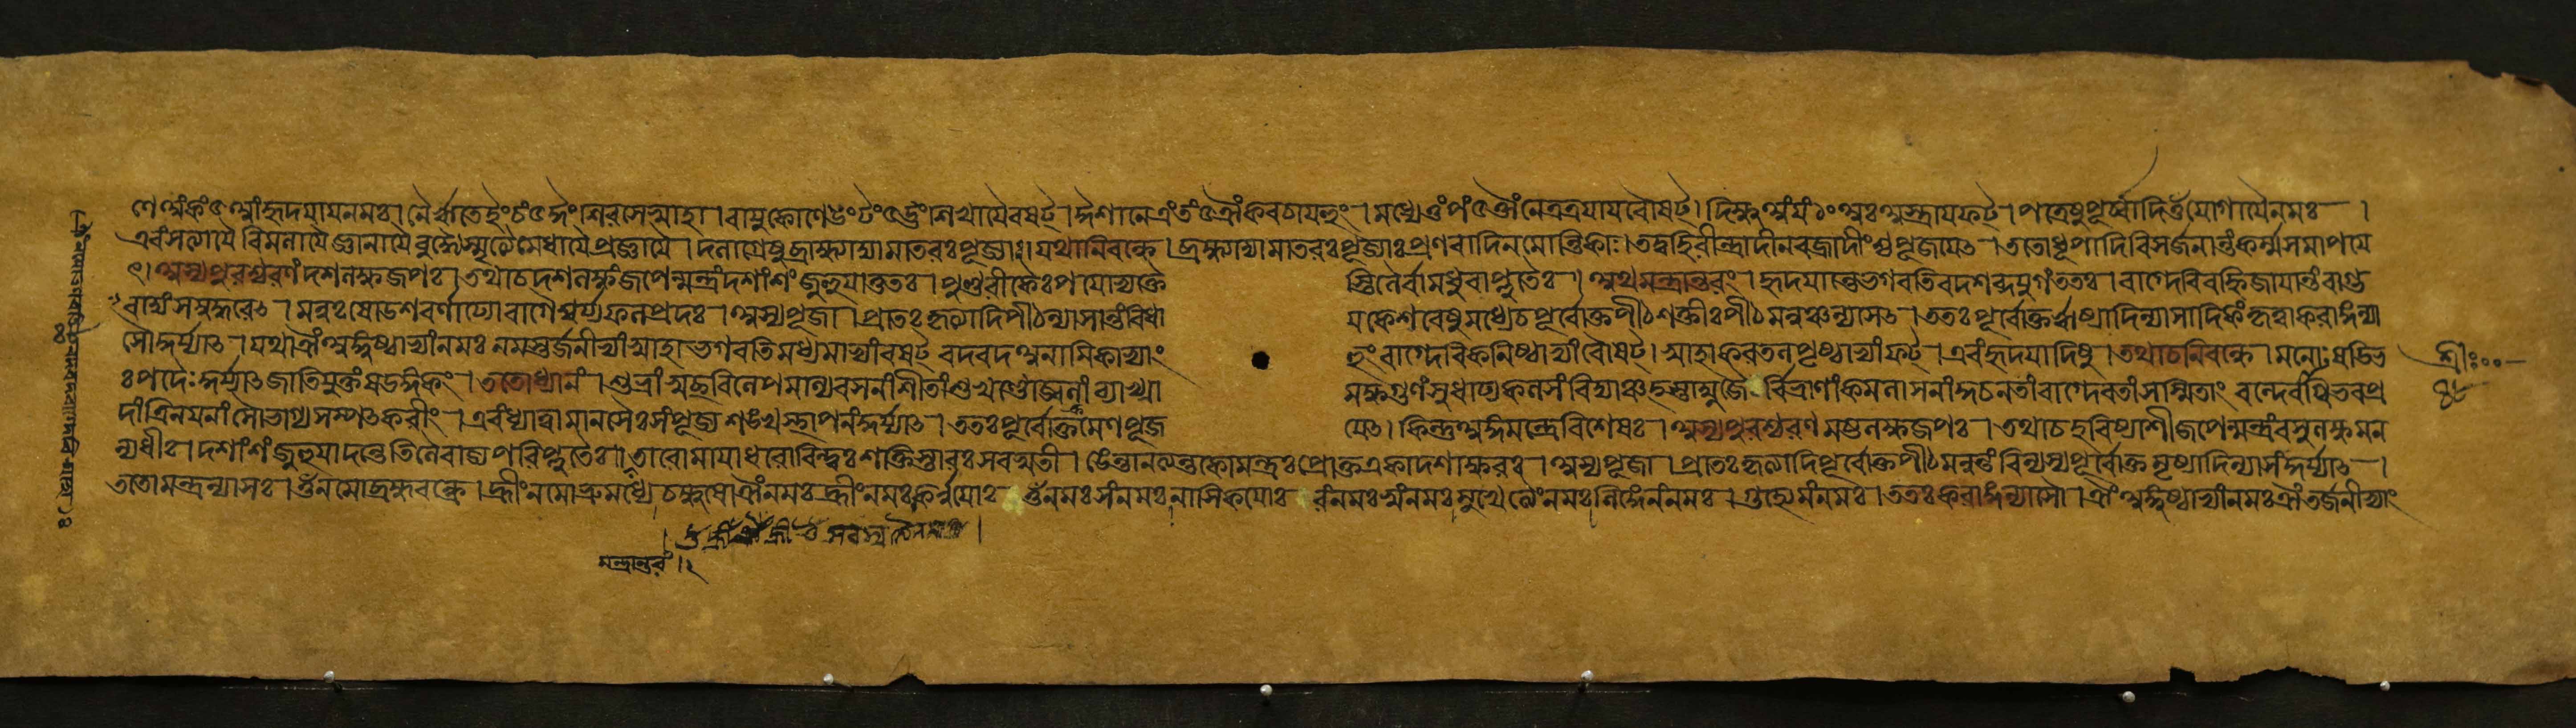 ণে অংকং ৫ আং হৃদয়ায় নমঃ । নৈর্ঋতে ইং চং ৫ ঈং শিরসে স্বাহা । বায়ুকোণে উং টং ৫ ঊং শিখায়ৈ বষট্ । ঈশানে এং তং ৫ ঐং কবচায় হুং । মধ্যে ওং পং ৫ ঔং নেত্রত্রয়ায় বৌষট্ । দিক্ষু অং যং ১০ অঃ অস্ত্রায় ফট্ । পত্রেষু পূর্ব্বাদি ওঁ যোগায়ৈ নমঃ ।
এবং সত্যায়ৈ বিমলায়ৈ জ্ঞানায়ৈ বুদ্ধ্যৈ স্মৃত্যৈ মেধায়ৈ প্রজ্ঞায়ৈ । দলাগ্রেষু ব্রাহ্ম্যাদ্যা মাতরঃ পূজ্যাঃ । যথা নিবন্ধে । ব্রাহ্ম্যাদ্যা মাতরঃ পূজ্যাঃ প্রণবাদিনমোন্তিকাঃ । তদ্বহিরীন্দ্রাদীন বজ্রাদীংশ্চ পূজয়েৎ । ততো ধূপাদিবিসর্জনান্তং কর্ম্ম সমাপয়ে
ৎ । অস্য পুরশ্চরণং দশলক্ষজপঃ । তথাচ দশলক্ষং জপেন্মন্ত্রং দশাংশং জুহুয়াত্ততঃ । পুণ্ডরীকৈঃ পয়োভ্যক্তৈ স্তিলৈর্বা মধুরাপ্লুতৈঃ । অথ মন্ত্রান্তরং । হৃদয়ান্তে ভগবতি বদশব্দযুগং ততঃ । বাগ্দেবি বহ্নিজায়ান্তং বাগ্ভ
বাদ্যং সমুদ্ধরেৎ । মনুঃ ষোডশবর্ণাঢ্যো বাগৈশ্বর্য্যফলপ্রদঃ । অস্য পূজা । প্রাতঃকৃত্যাদি পীঠন্যাসান্তং বিধা য় কেশরেষু মধ্যে চ পূর্বোক্তপীঠশক্তীঃ পীঠমনুঞ্চ ন্যসেৎ । ততঃ পূর্বোক্তঋষ্যাদিন্যাসাদিকং কৃত্বা করাঙ্গন্যা
সৌ কুর্য্যাৎ । যথা ঐং অঙ্গুষ্ঠাভ্যাং নমঃ নমস্তর্জনীভ্যাং স্বাহা ভগবতি মধ্যমাভ্যাং বষট্ বদবদ অনামিকাভ্যাং হুং বাগ্দেবি কনিষ্ঠাভ্যাং বৌষট্ । স্বাহা করতলপৃষ্ঠাভ্যাং ফট্ । এবং হৃদয়াদিষু । তথাচ নিবন্ধে । মনোঃ ষড্ভি
ঃ পদৈঃ কুর্য্যাৎ জাতিযুক্তং ষডঙ্গকং । ততো ধ্যানং । শুভ্রাং স্বচ্ছবিলেপমাল্যবসনাং শীতাংশুখণ্ডোজ্জ্বলাং ব্যাখ্যা মক্ষগুণং সুধাঢ্যকলসং বিদ্যাঞ্চ হস্তাম্বুজৈঃ । বিভ্রাণাং কমলাসনাং কুচনতাং বাগ্দেবতাং সস্মিতাং বন্দে বাগ্বিভবপ্র
দাং ত্রিনয়নাং সৌভাগ্যসম্পৎকরীং । এবং ধ্যাত্বা মানসৈঃ সংপূজ্য শঙ্খস্থাপনং কুর্য্যাৎ । ততঃ পূর্বোক্তক্রমেণ পূজ য়েৎ । কিন্তু অঙ্গমন্ত্রে বিশেষঃ । অস্য পুরশ্চরণমষ্টলক্ষজপঃ । তথাচ হবিষ্যাশী জপেন্মন্ত্রং বসুলক্ষমন
ন্যধীঃ । দশাংশং জুহুয়াদন্তে তিলৈরাজ্যপরিপ্লুতৈঃ । তারো মায়াধরোবিন্দুঃ শক্তিস্তারঃ সরস্বতী । ঙেন্তা নত্যন্তকো মন্ত্রঃ প্রোক্ত একাদশাক্ষরঃ । অস্য পূজা । প্রাতঃকৃত্যাদি পূর্বোক্তপীঠমন্বন্তং বিন্যস্য পূর্বোক্তমৃষ্যাদিন্যাসং কুর্য্যাৎ ।
ততো মন্ত্রন্যাসঃ । ওঁ নমো ব্রহ্মরন্ধ্রে । হ্রীং নমো ভ্রূমধ্যে চক্ষুষো ঐং নমঃ হ্রীং নমঃ কর্ণয়োঃ ওঁ নমঃ সং নমঃ নাসিকয়োঃ রং নমঃ স্বং নমঃ মুখে ত্যৈং নমঃ লিঙ্গে নং নমঃ । গুহ্যে মং নমঃ । ততঃ করাঙ্গন্যাসৌ । ঐং অঙ্গুষ্ঠাভ্যাং নমঃ ঐং তর্জনীভ্যাং
। ওঁ হ্রীঁ ঐঁ হ্রীঁ ওঁ সরস্বত্যৈ নমঃ ।
মন্ত্রান্তরং । ২
শ্রীঃ